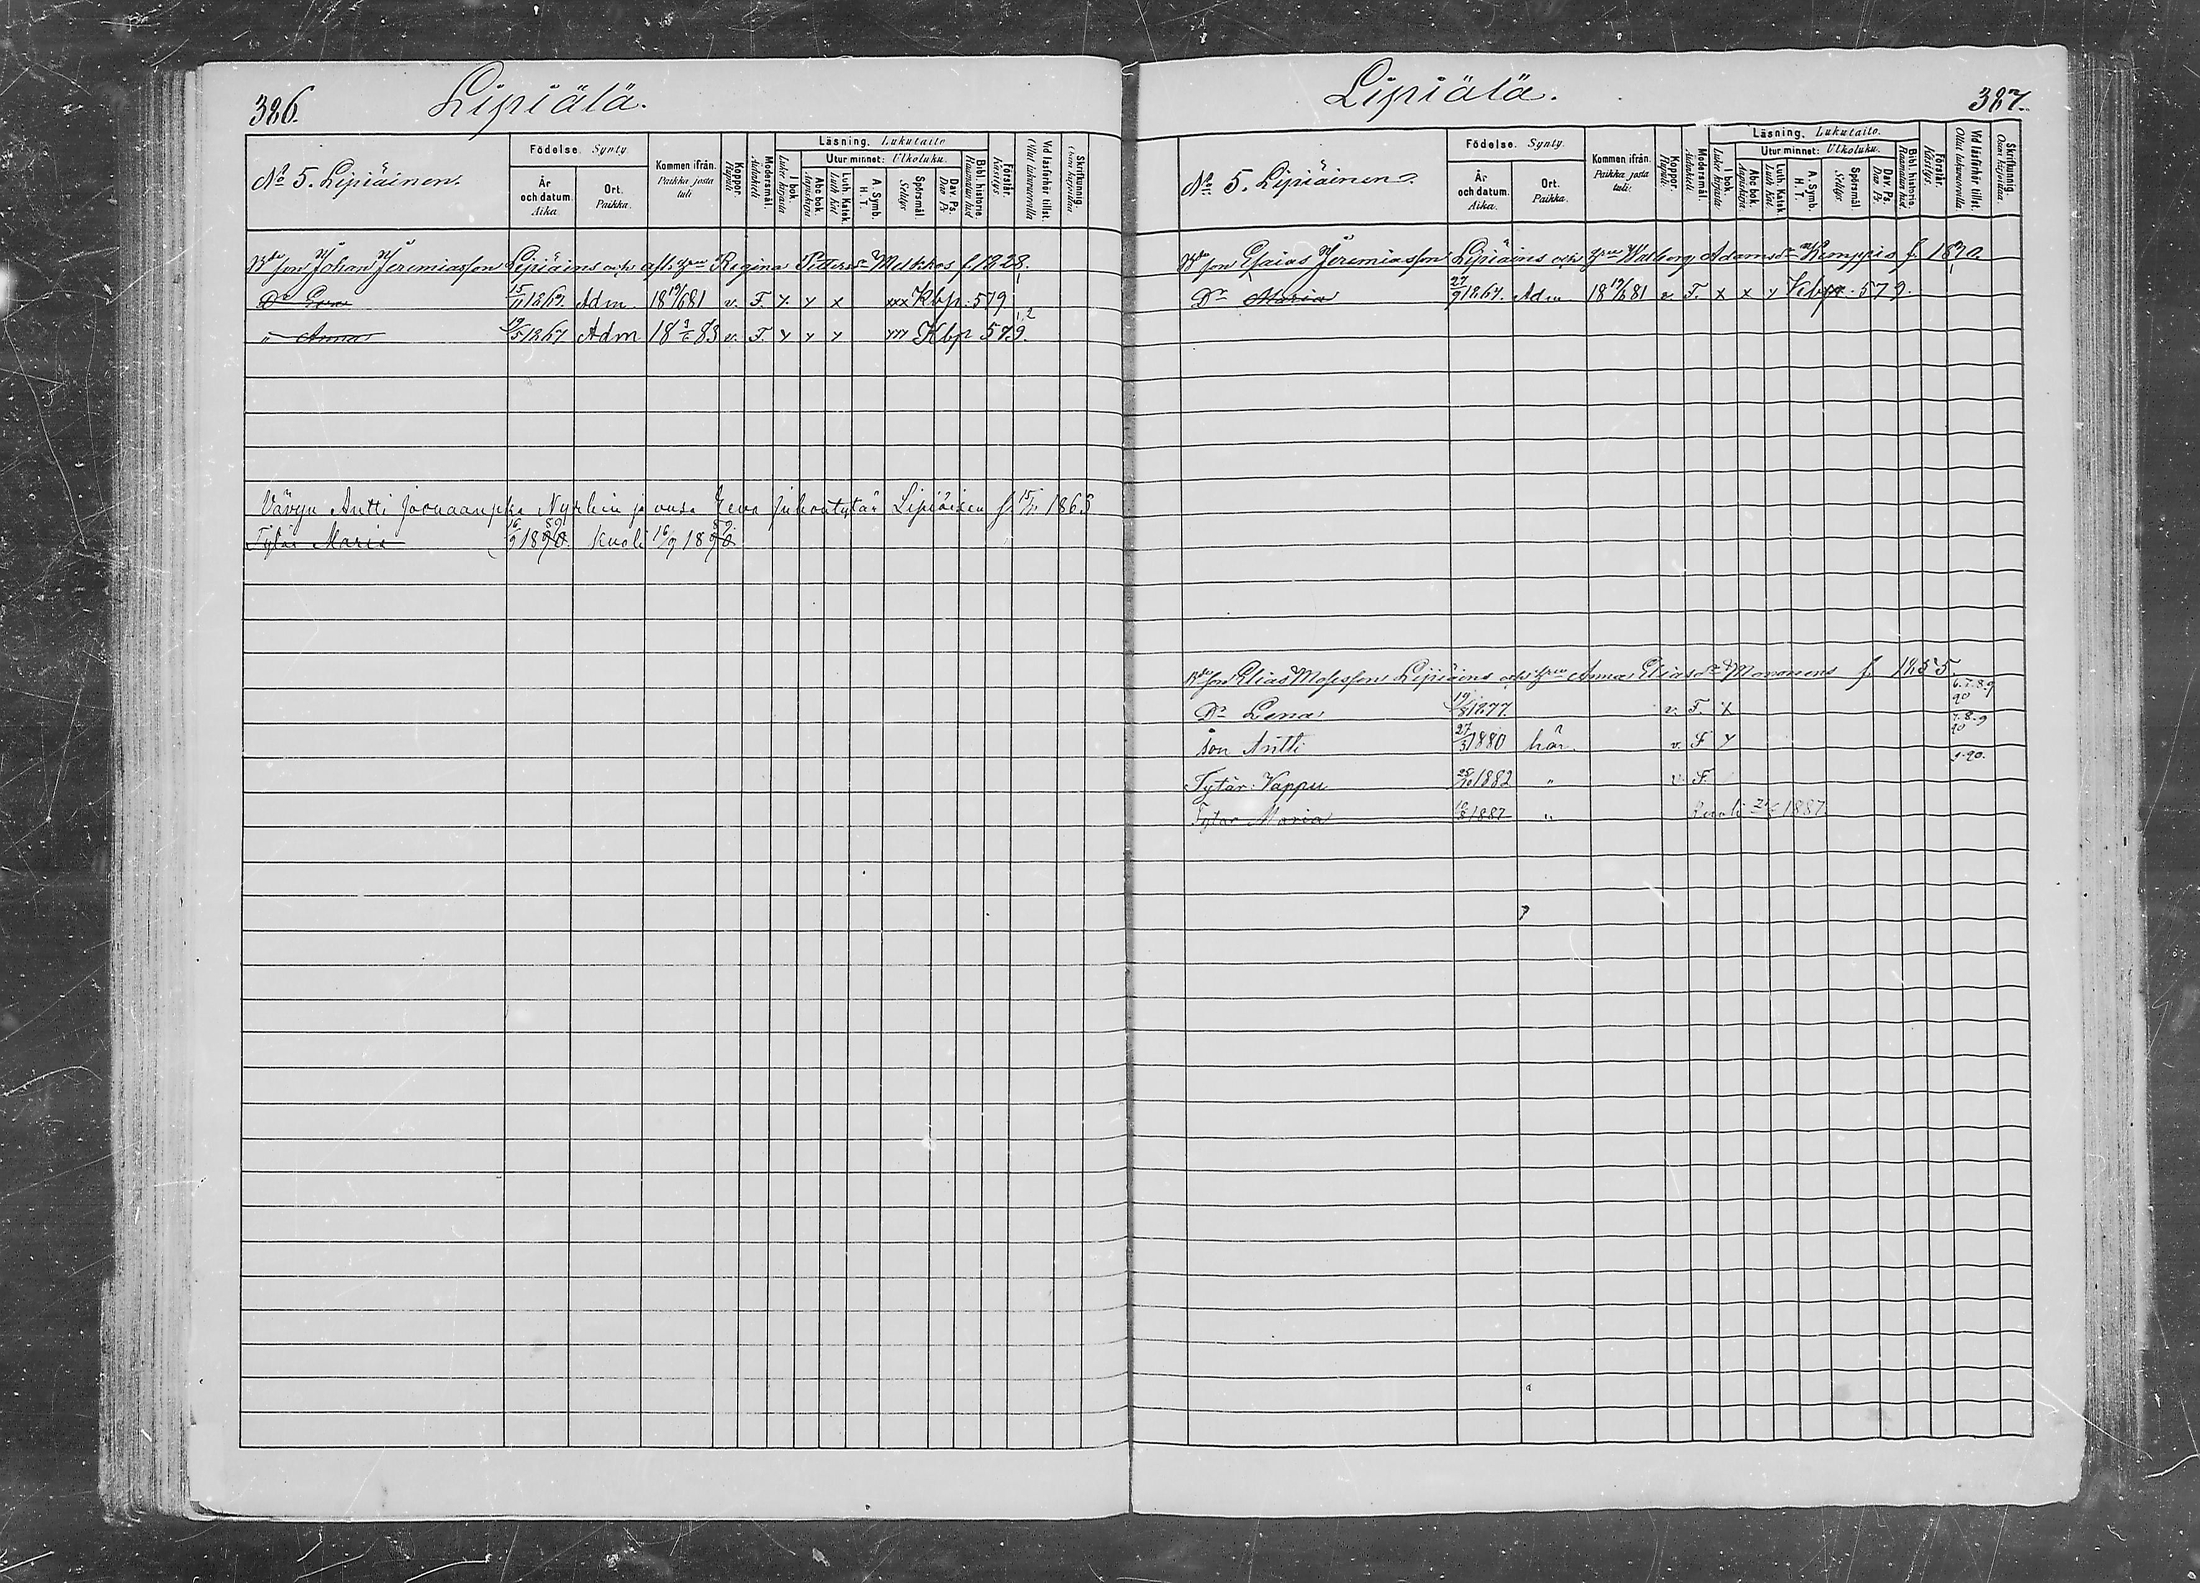 386.
Lipiälä.
Nº 5. Lipiäinen.
Födelse. Synty
År och datum. Aika.
Ort. Paikka.
Kommen ifrån. Paikka josta tuli
Koppor. Rupuli
Modersmål. Äidinkieli
Läsning. Lukutaito
I bok. Lukee kirjasta
Utur minnet: Ulkoluku.
Abc bok. Aapiskirja
Luth. Katek. Luth Kat
A. Symb. H. T.
Spörsmål Selitys
Dav. Ps. Dav Ps
Bibl. historie. Raamatun hist
Förstår. Käsitys.
Vid läsförhör tillst. Ollut lukuvuorolla
Skrifkunnig. Osaa kirjoittaa
Bde son Johan Jeremiasson Lipiäins och afl. hru Regina Petters dr Melkkos f. 1828.
Dr Eva 15/11 1863. Adm 18 19/6 81 v. F. x x x xxx Kbp. 579
" Anna 19/5 1867 Adm 18 83 v. F. x x x xxx Kbp 579.
Vävyn Antti Joonaanpka Nyrhin ja vmsa Eeva Juhontytär Lipiäisen f. 15/11 1863
Tytär Maria 16/9 1890. Kuoli 16/9 1890
387.
Lipiälä.
Nº 5. Lipiäinen.
Födelse. Synty.
År och datum. Aika.
Ort. Paikka.
Kommen ifrån. Paikka josta tuli:
Koppor. Rupuli.
Modersmål. Äidinkieli
Läsning. Lukutaito.
I bok. Lukee kirjasta
Utur minnet: Ulkoluku.
Abc bok. Aapiskirja.
Luth Katek Luth Kat.
A. Symb. H. T.
Spörsmål. Selitys
Dav. Ps. Dav Ps.
Bibl. historie. Raamatun hist.
Förstår. Käsitys.
Vid läsförhör tillst. Ollut lukuvuorolla.
Skrifkunnig. Osaa kirjoittaa.
Bde son Esaias Jeremiasson Lipiäins och hru Walborg Adams dr Kemppis f. 1830.
Dr Maria 27/9 1867. Adm 18 19/6 81 v. F. x x x Kbp. 579.
Bde son Elias Mosesson Lipiäins och hru Anna Elias dr Mononens f. 1855.
Dr Lena 19/8 1877. v. F. x 6.7.8.9 90
Son Antti 27/3 1880 här v. F x 7.8.9 90
Tytär Vappu 25/10 1882 " v F. 9.90.
Tytär Maria 1887 " Kuoli 1887.